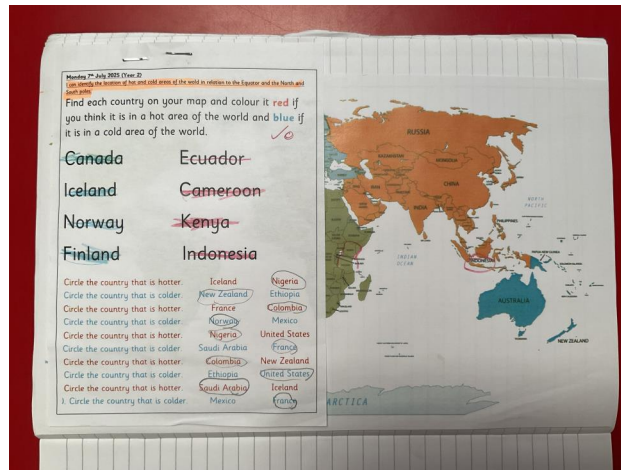 Monday 7th July 2025 (Year 2)
I can identify the location of hot and cold areas of the world in relation to the Equator and the North and
South poles
Find each country on your map and colour it red if
you think it is in a hot area of the world and blue if
it is in a cold area of the world.
Canada Ecuador
Iceland Cameroon
Norway Kenya
Finland Indonesia
Circle the country that is hotter. Iceland Nigeria
Circle the country that is colder. New Zealand Ethiopia
Circle the country that is hotter. France Colombia
Circle the country that is colder. Norway Mexico
Circle the country that is hotter. Nigeria United States
Circle the country that is colder. Saudi Arabia France
Circle the country that is hotter. Colombia New Zealand
Circle the country that is colder. Ethiopia United States
Circle the country that is hotter. Saudi Arabia Iceland
). Circle the country that is colder. Mexico France
RUSSIA
KAZAKHSTAN
MONGOLIA
CHINA
INDIA
NORTH
PACIFIC
PHILIPPINES
INDIAN
OCEAN
INDONESIA
PAPUA NEW GUINEA
AUSTRALIA
NEW ZEALAND
ARCTICA